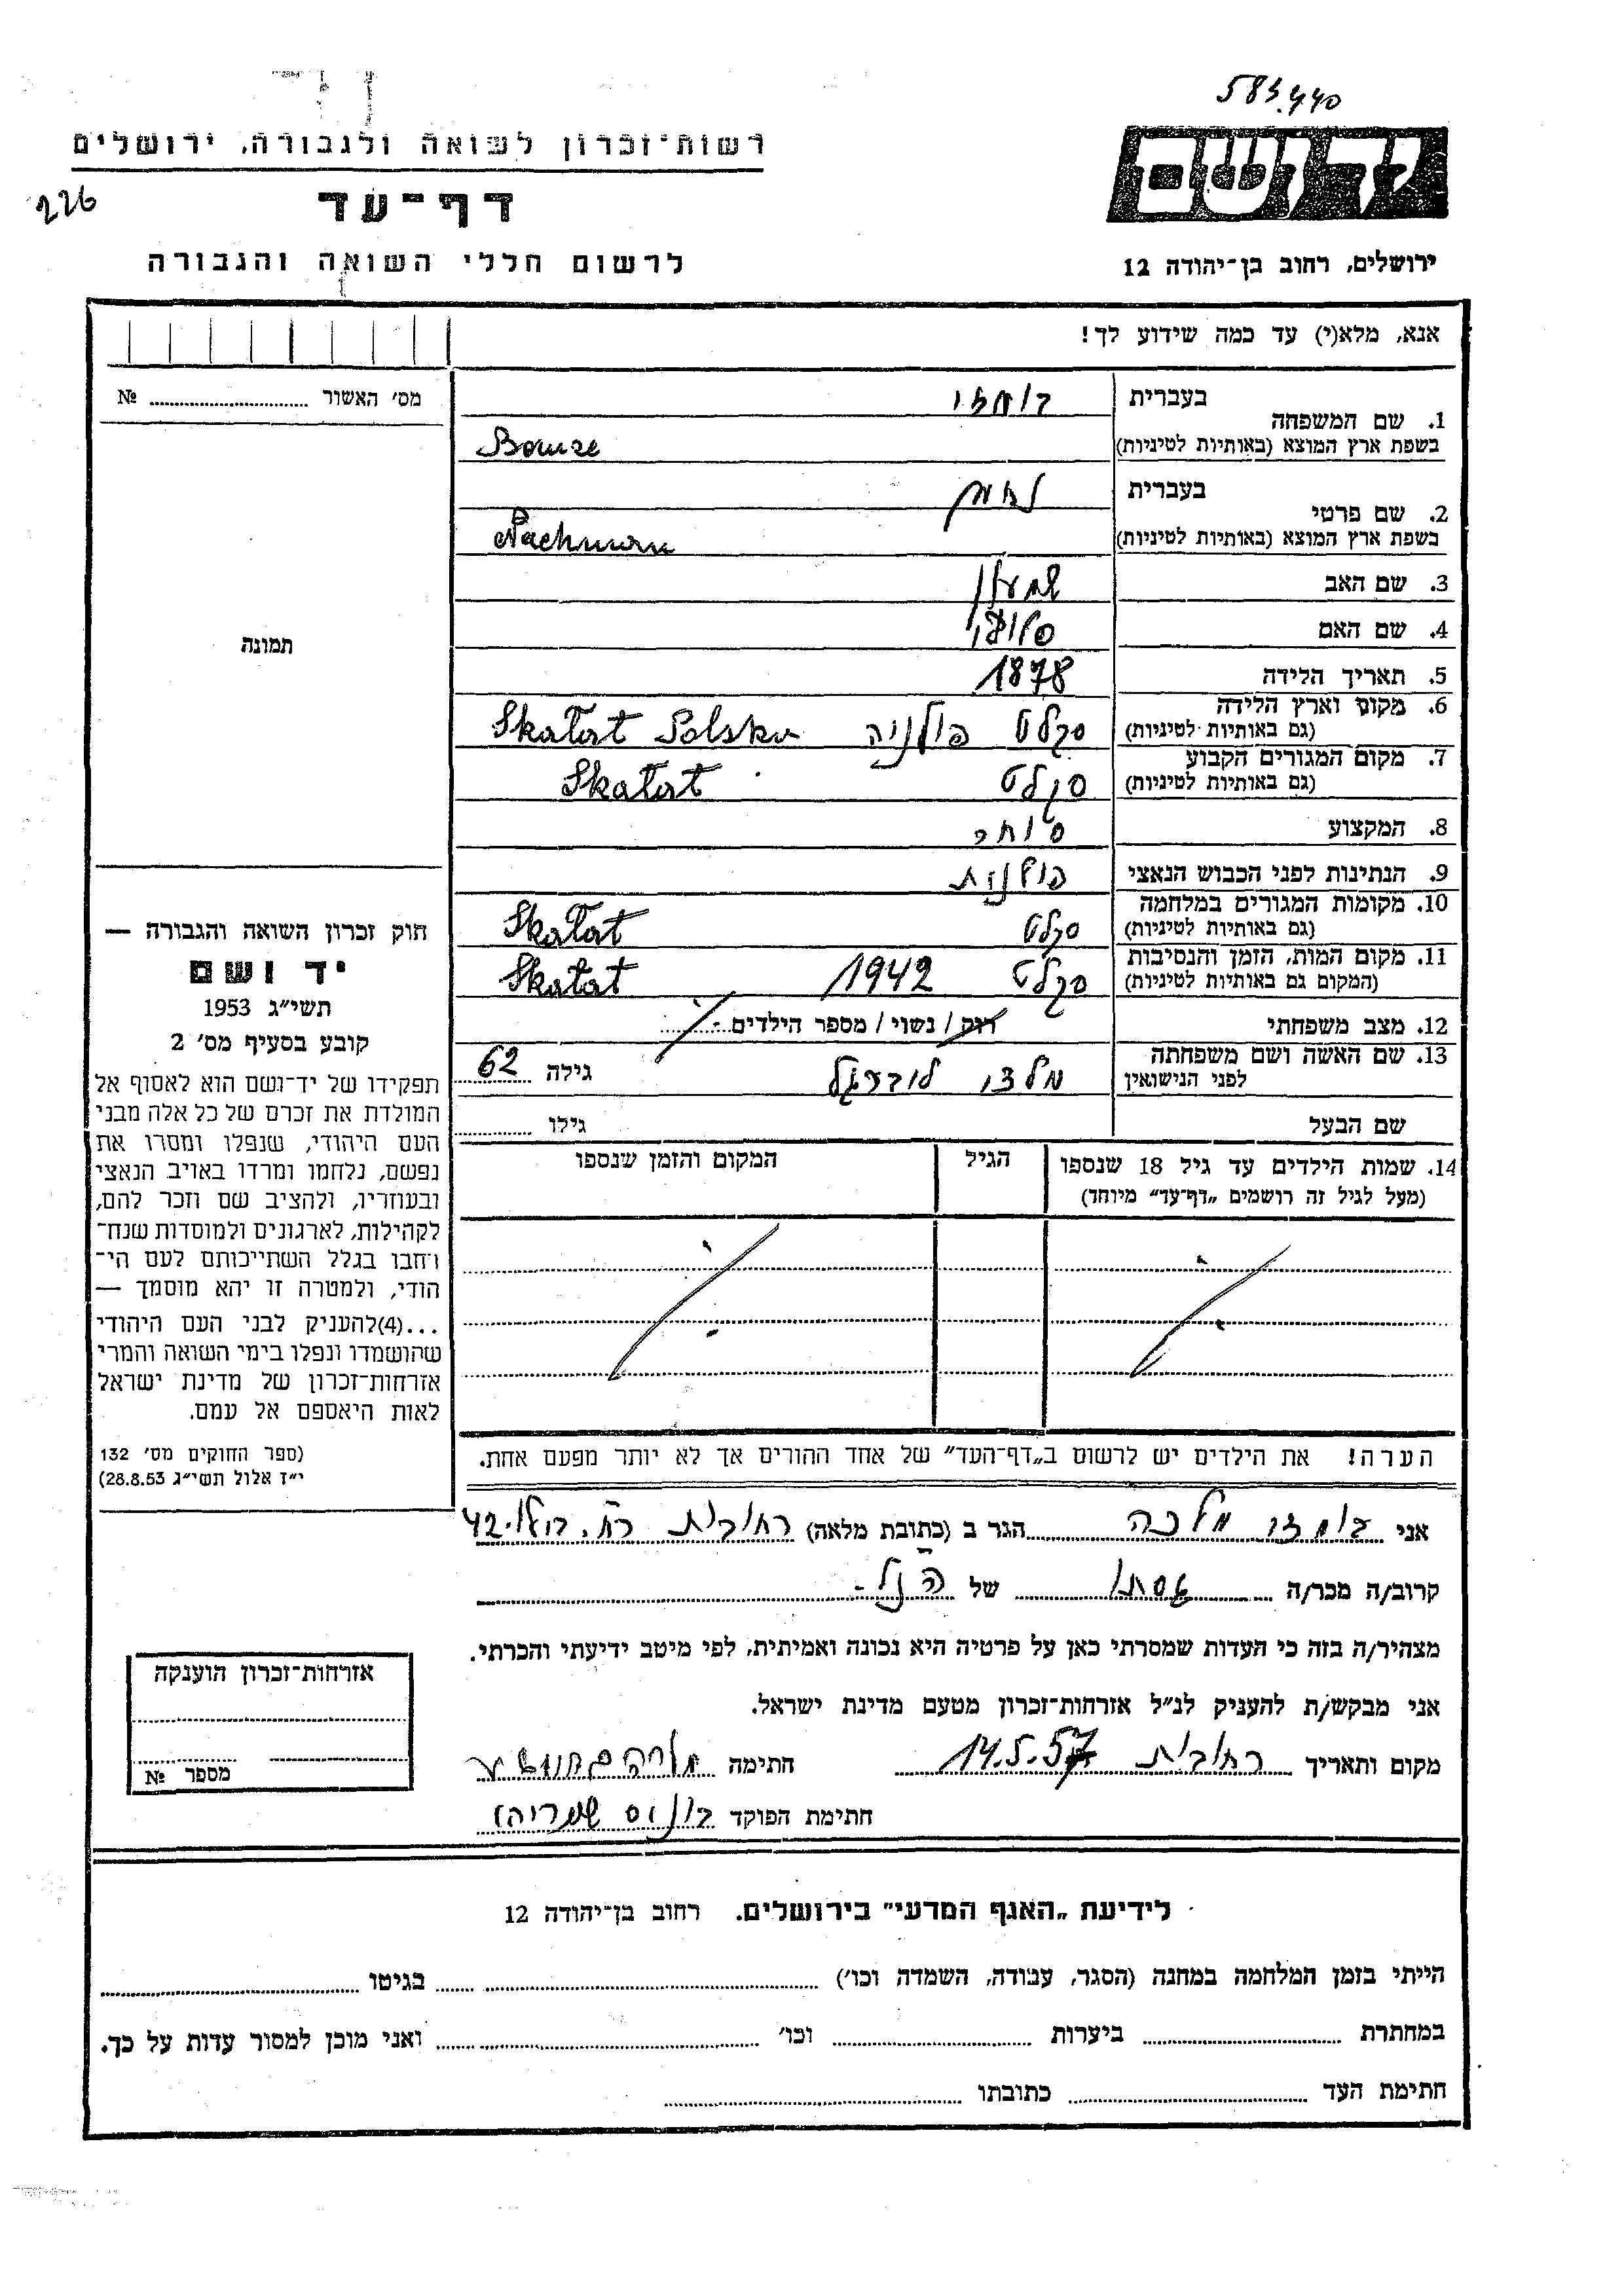 583440
רשות-זכרון לשואה ולגבורה, ירושלים
226
דף-עד
לרשום חללי השואה והגבורה
ידושם
ירושלים, רחוב בן-יהודה 12
אנא, מלא(י) עד כמה שידוע לך!
מס׳ האשור № ........
תמונה
חוק זכרון השואה והגבורה —
יד ושם
תשי״ג 1953
קובע בסעיף מס׳ 2
תפקידו של יד-ושם הוא לאסוף אל
המולדת את זכרם של כל אלה מבני
העם היהודי, שנפלו ומסרו את
נפשם, נלחמו ומרדו באויב הנאצי
ובעוזריו, ולהציב שם וזכר להם,
לקהילות, לארגונים ולמוסדות שנח־
רחבו בגלל השתייכותם לעם הי־
הודי, ולמטרה זו יהא מוסמך —
...(4)להעניק לבני העם היהודי
שהושמדו ונפלו בימי השואה והמרי
אזרחות-זכרון של מדינת ישראל
לאות היאספם אל עמם.
(ספר החוקים מס׳ 132
י״ז אלול תשי״ג 28.8.53)
1. שם המשפחה
בעברית
בשפת ארץ המוצא (באותיות לטיניות) Bomze
2. שם פרטי
בעברית נחמן
בשפת ארץ המוצא (באותיות לטיניות) Nachman
3. שם האב שמעון
4. שם האם
5. תאריך הלידה 1878
6. מקום וארץ הלידה סקלט פולניה Skałat Polska
(גם באותיות לטיניות)
7. מקום המגורים הקבוע סקלט Skałat
(גם באותיות לטיניות)
8. המקצוע סוחר
9. הנתינות לפני הכבוש הנאצי פולנית
10. מקומות המגורים במלחמה סקלט Skałat
(גם באותיות לטיניות)
11. מקום המות, הזמן והנסיבות סקלט 1942 Skałat
(המקום גם באותיות לטיניות)
12. מצב משפחתי רוק / נשוי / מספר הילדים
13. שם האשה ושם משפחתה גילה 62
לפני הנישואין
שם הבעל גילו
14. שמות הילדים עד גיל 18 שנספו
(מעל לגיל זה רושמים „דף-עד״ מיוחד)
הגיל
המקום והזמן שנספו
הערה! את הילדים יש לרשום ב„דף-העד״ של אחד ההורים אך לא יותר מפעם אחת.
אני בומזי מלכה הגר ב (כתובת מלאה) רחובות רח. 42
קרוב/ה מכר/ה של הנ״ל
מצהיר/ה בזה כי העדות שמסרתי כאן על פרטיה היא נכונה ואמיתית, לפי מיטב ידיעתי והכרתי.
אני מבקש/ת להעניק לנ״ל אזרחות-זכרון מטעם מדינת ישראל.
מקום ותאריך רחובות 14.5.57 חתימה
חתימת הפוקד
אזרחות-זכרון הוענקה
מספר №
לידיעת „האגף המדעי״ בירושלים. רחוב בן-יהודה 12
הייתי בזמן המלחמה במחנה (הסגר, עבודה, השמדה וכו׳) בגיטו
במחתרת ביערות וכו׳ ואני מוכן למסור עדות על כך.
חתימת העד כתובתו